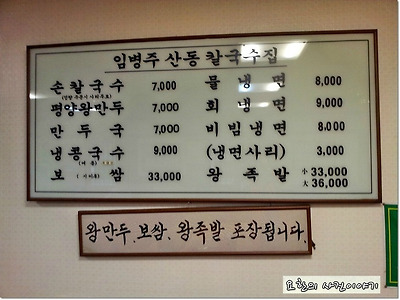 임병주 산동 칼국수집
손칼국수 7,000
평양왕만두 7,000
만두국 7,000
냉콩국수 9,000
보쌈 33,000
물냉면 8,000
회냉면 9,000
비빔냉면 8,000
(냉면사리) 3,000
왕족발 小 33,000
大 36,000
왕만두, 보쌈, 왕족발 포장됩니다.
요한의 사진이야기